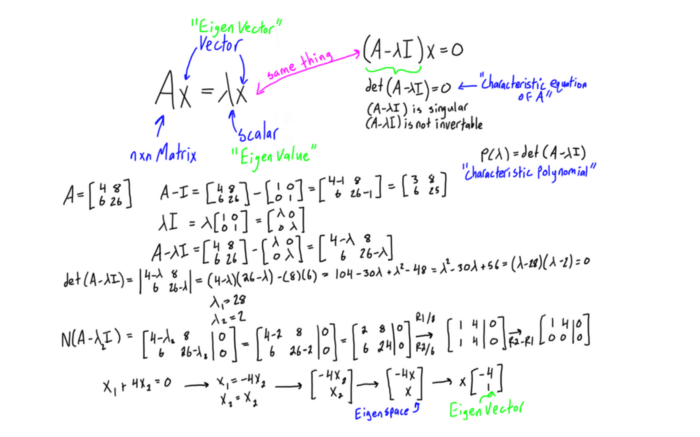 "Eigen Vector"
Vector
Ax = λx
same thing
scalar
"Eigen Value"
nxn Matrix
(A-λI)x = 0
det(A-λI)=0 ← "Characteristic equation of A"
(A-λI) is singular
(A-λI) is not invertable
P(λ)=det(A-λI)
"Characteristic Polynomial"
A=[4 8; 6 26] A-I=[4 8; 6 26]-[1 0; 0 1]=[4-1 8; 6 26-1]=[3 8; 6 25]
λI = λ[1 0; 0 1]=[λ 0; 0 λ]
A-λI=[4 8; 6 26]-[λ 0; 0 λ]=[4-λ 8; 6 26-λ]
det(A-λI)=|4-λ 8; 6 26-λ|=(4-λ)(26-λ)-(8)(6)=104-30λ+λ²-48=λ²-30λ+56=(λ-28)(λ-2)=0
λ₁=28
λ₂=2
N(A-λ₂I)=[4-λ₂ 8|0; 6 26-λ₂|0]=[4-2 8|0; 6 26-2|0]=[2 8|0; 6 24|0] R1/2 → R2/6 [1 4|0; 1 4|0] → R2-R1 [1 4|0; 0 0|0]
x₁+4x₂=0 → x₁=-4x₂ x₂=x₂ → [-4x₂; x₂] → [-4x; x] → x[-4; 1]
Eigenspace
Eigen Vector